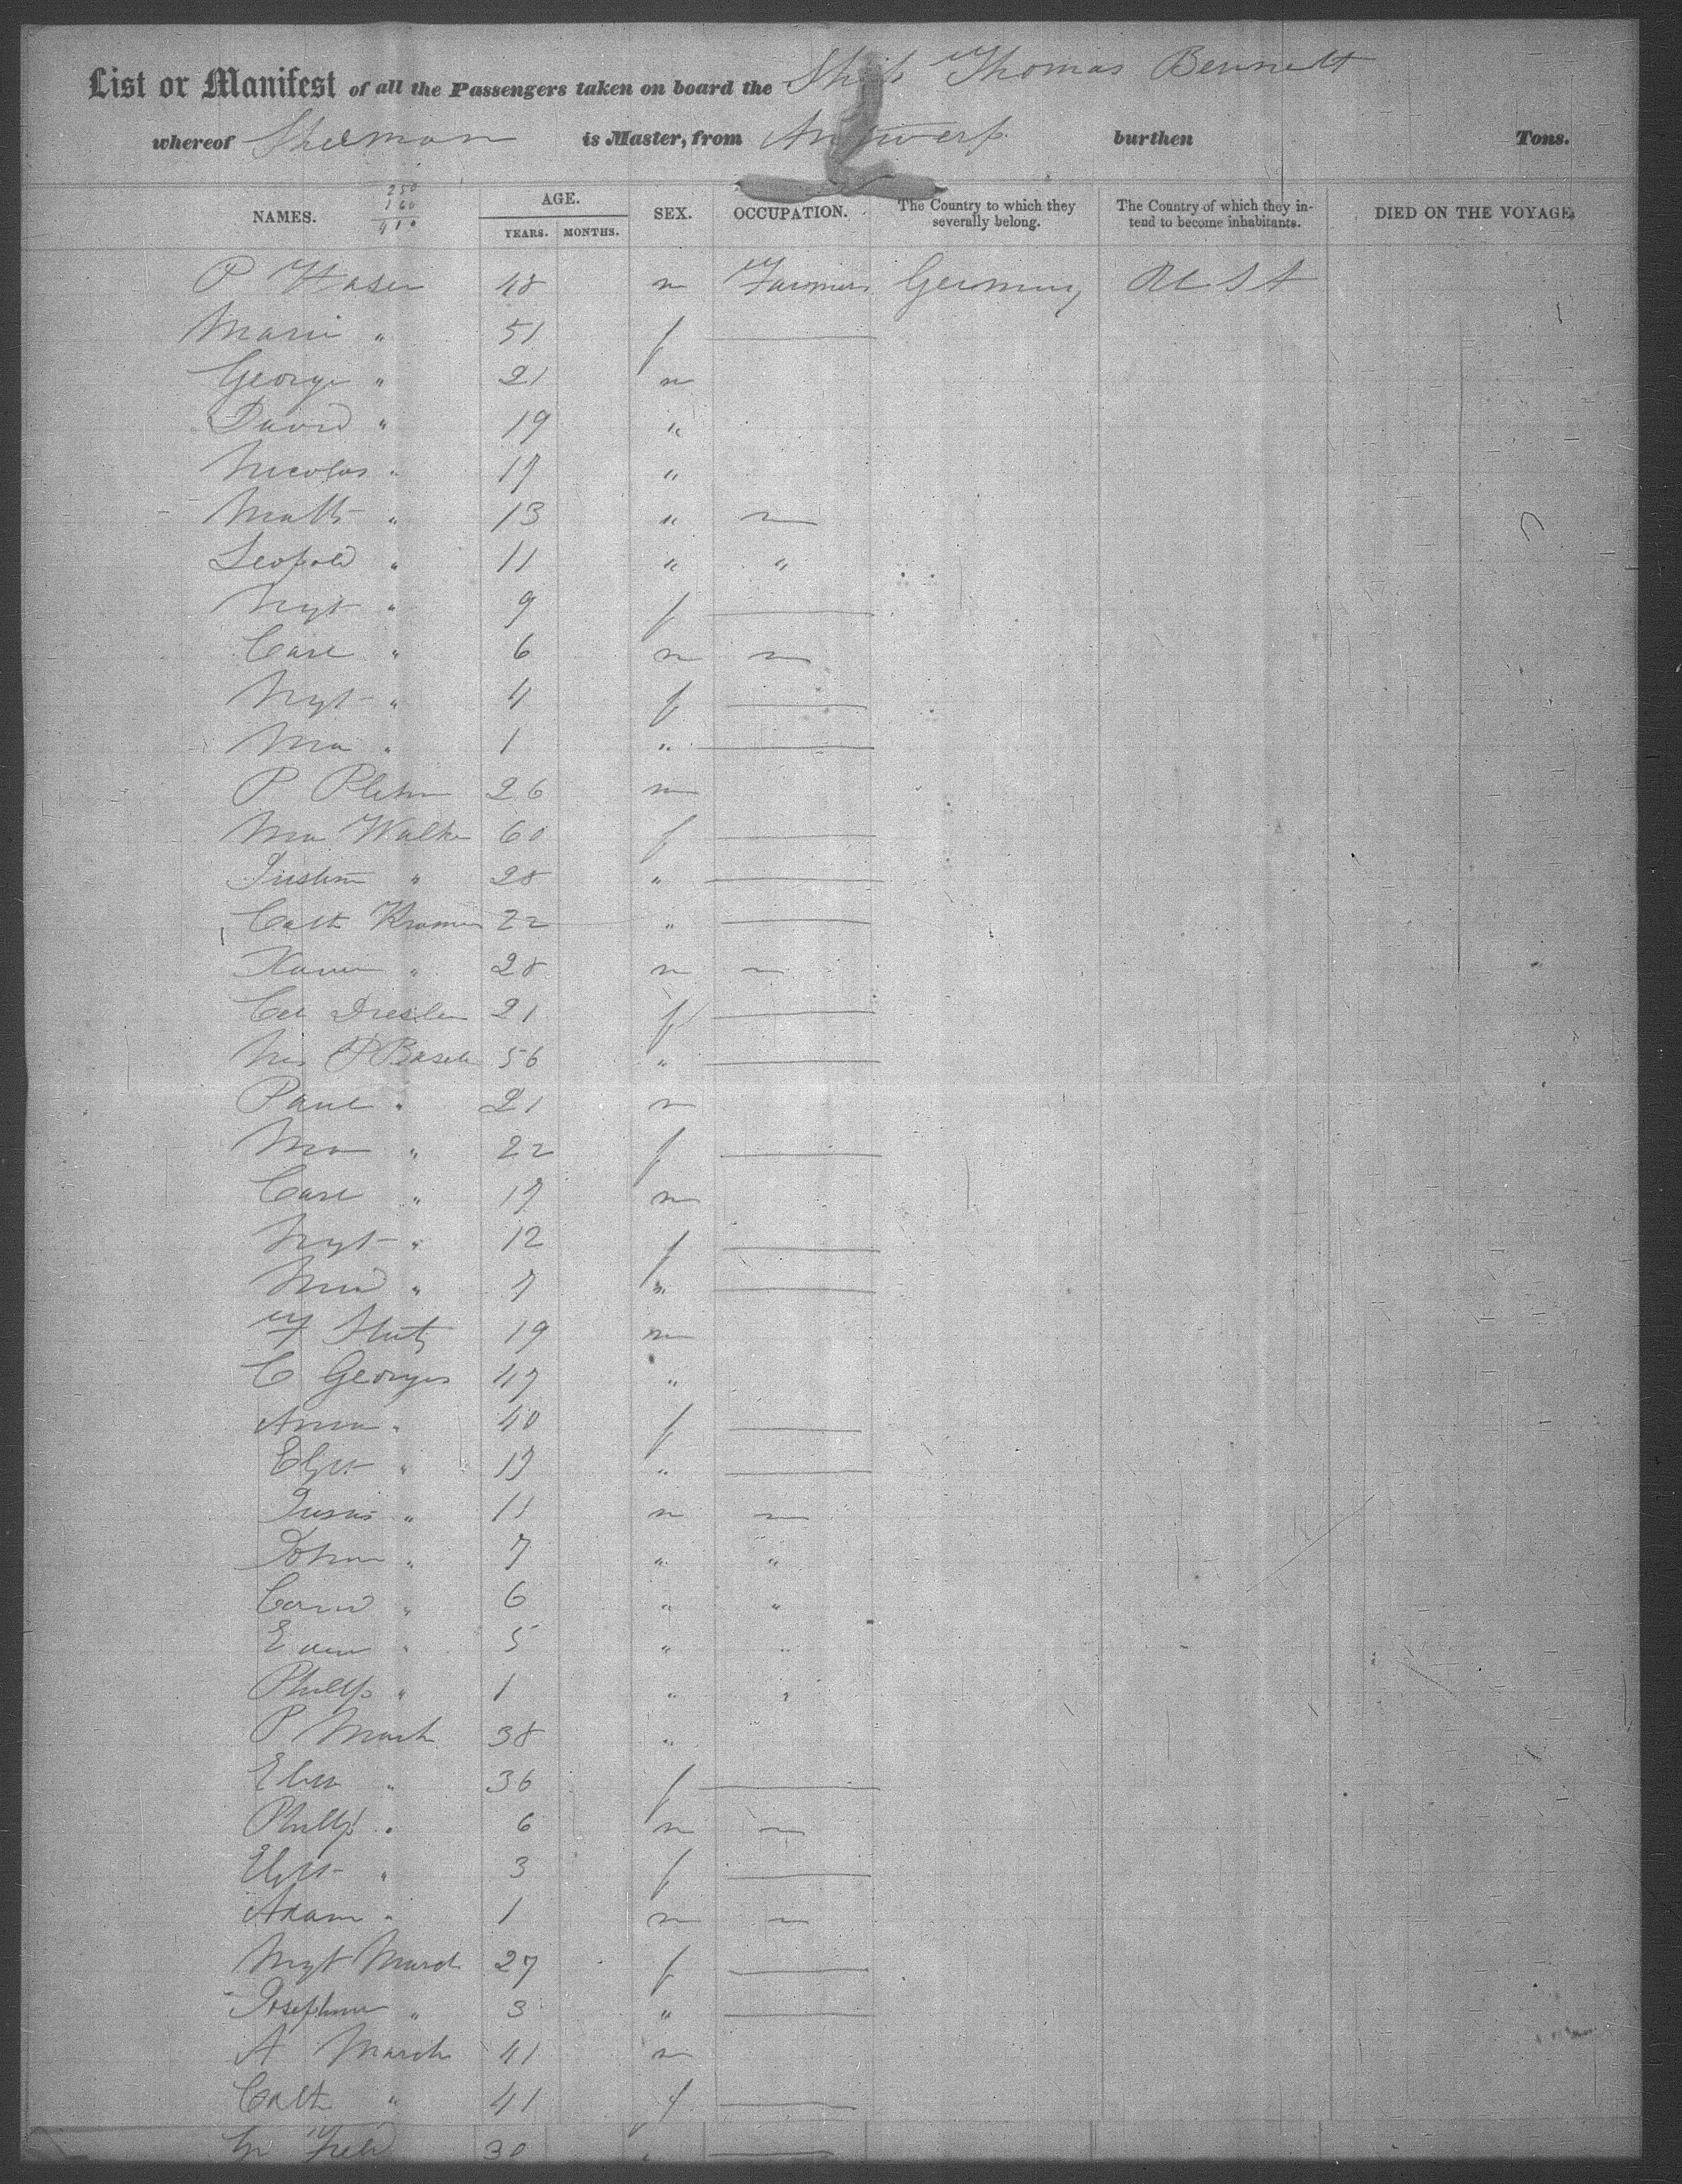 List or Manifest of all the Passengers taken on board the Ship Thomas Bennett
whereof Sherman is Master, from Antwerp burthen Tons.
NAMES. 250 160 410 AGE. YEARS. MONTHS. SEX. OCCUPATION. The Country to which they severally belong. The Country of which they intend to become inhabitants. DIED ON THE VOYAGE.
P 48 m Farmers Germany U S A
Marie " 51 f
George " 21 m
David " 19 "
Nicolas " 17 "
Math " 13 " —
Leopold " 11 " "
Mgt " 9 f
Carl " 6 m —
Mgt " 4 f
Ma " 1 "
P 26 m
Ma Walker 60 f
Justin " 28 "
Cath Kramer 22 "
Xavier " 28 m —
Dresler 21 f
56 "
Paul " 21 m
Ma " 22 f
Carl " 17 m
Mgt " 12 f
" 7 "
19 m
C Georges 47 "
Anna " 40 f
Elizt " 17 "
" 11 m —
Johan " 7 " "
" 6 " "
" 5 " "
Phillp " 1 " "
P 38 "
" 36 f
Phillp " 6 m —
Elizt " 3 f
Adam " 1 m —
Mgt March 27 f
Josephine " 3 "
A March 41 m
Cath " 41 f
30 "